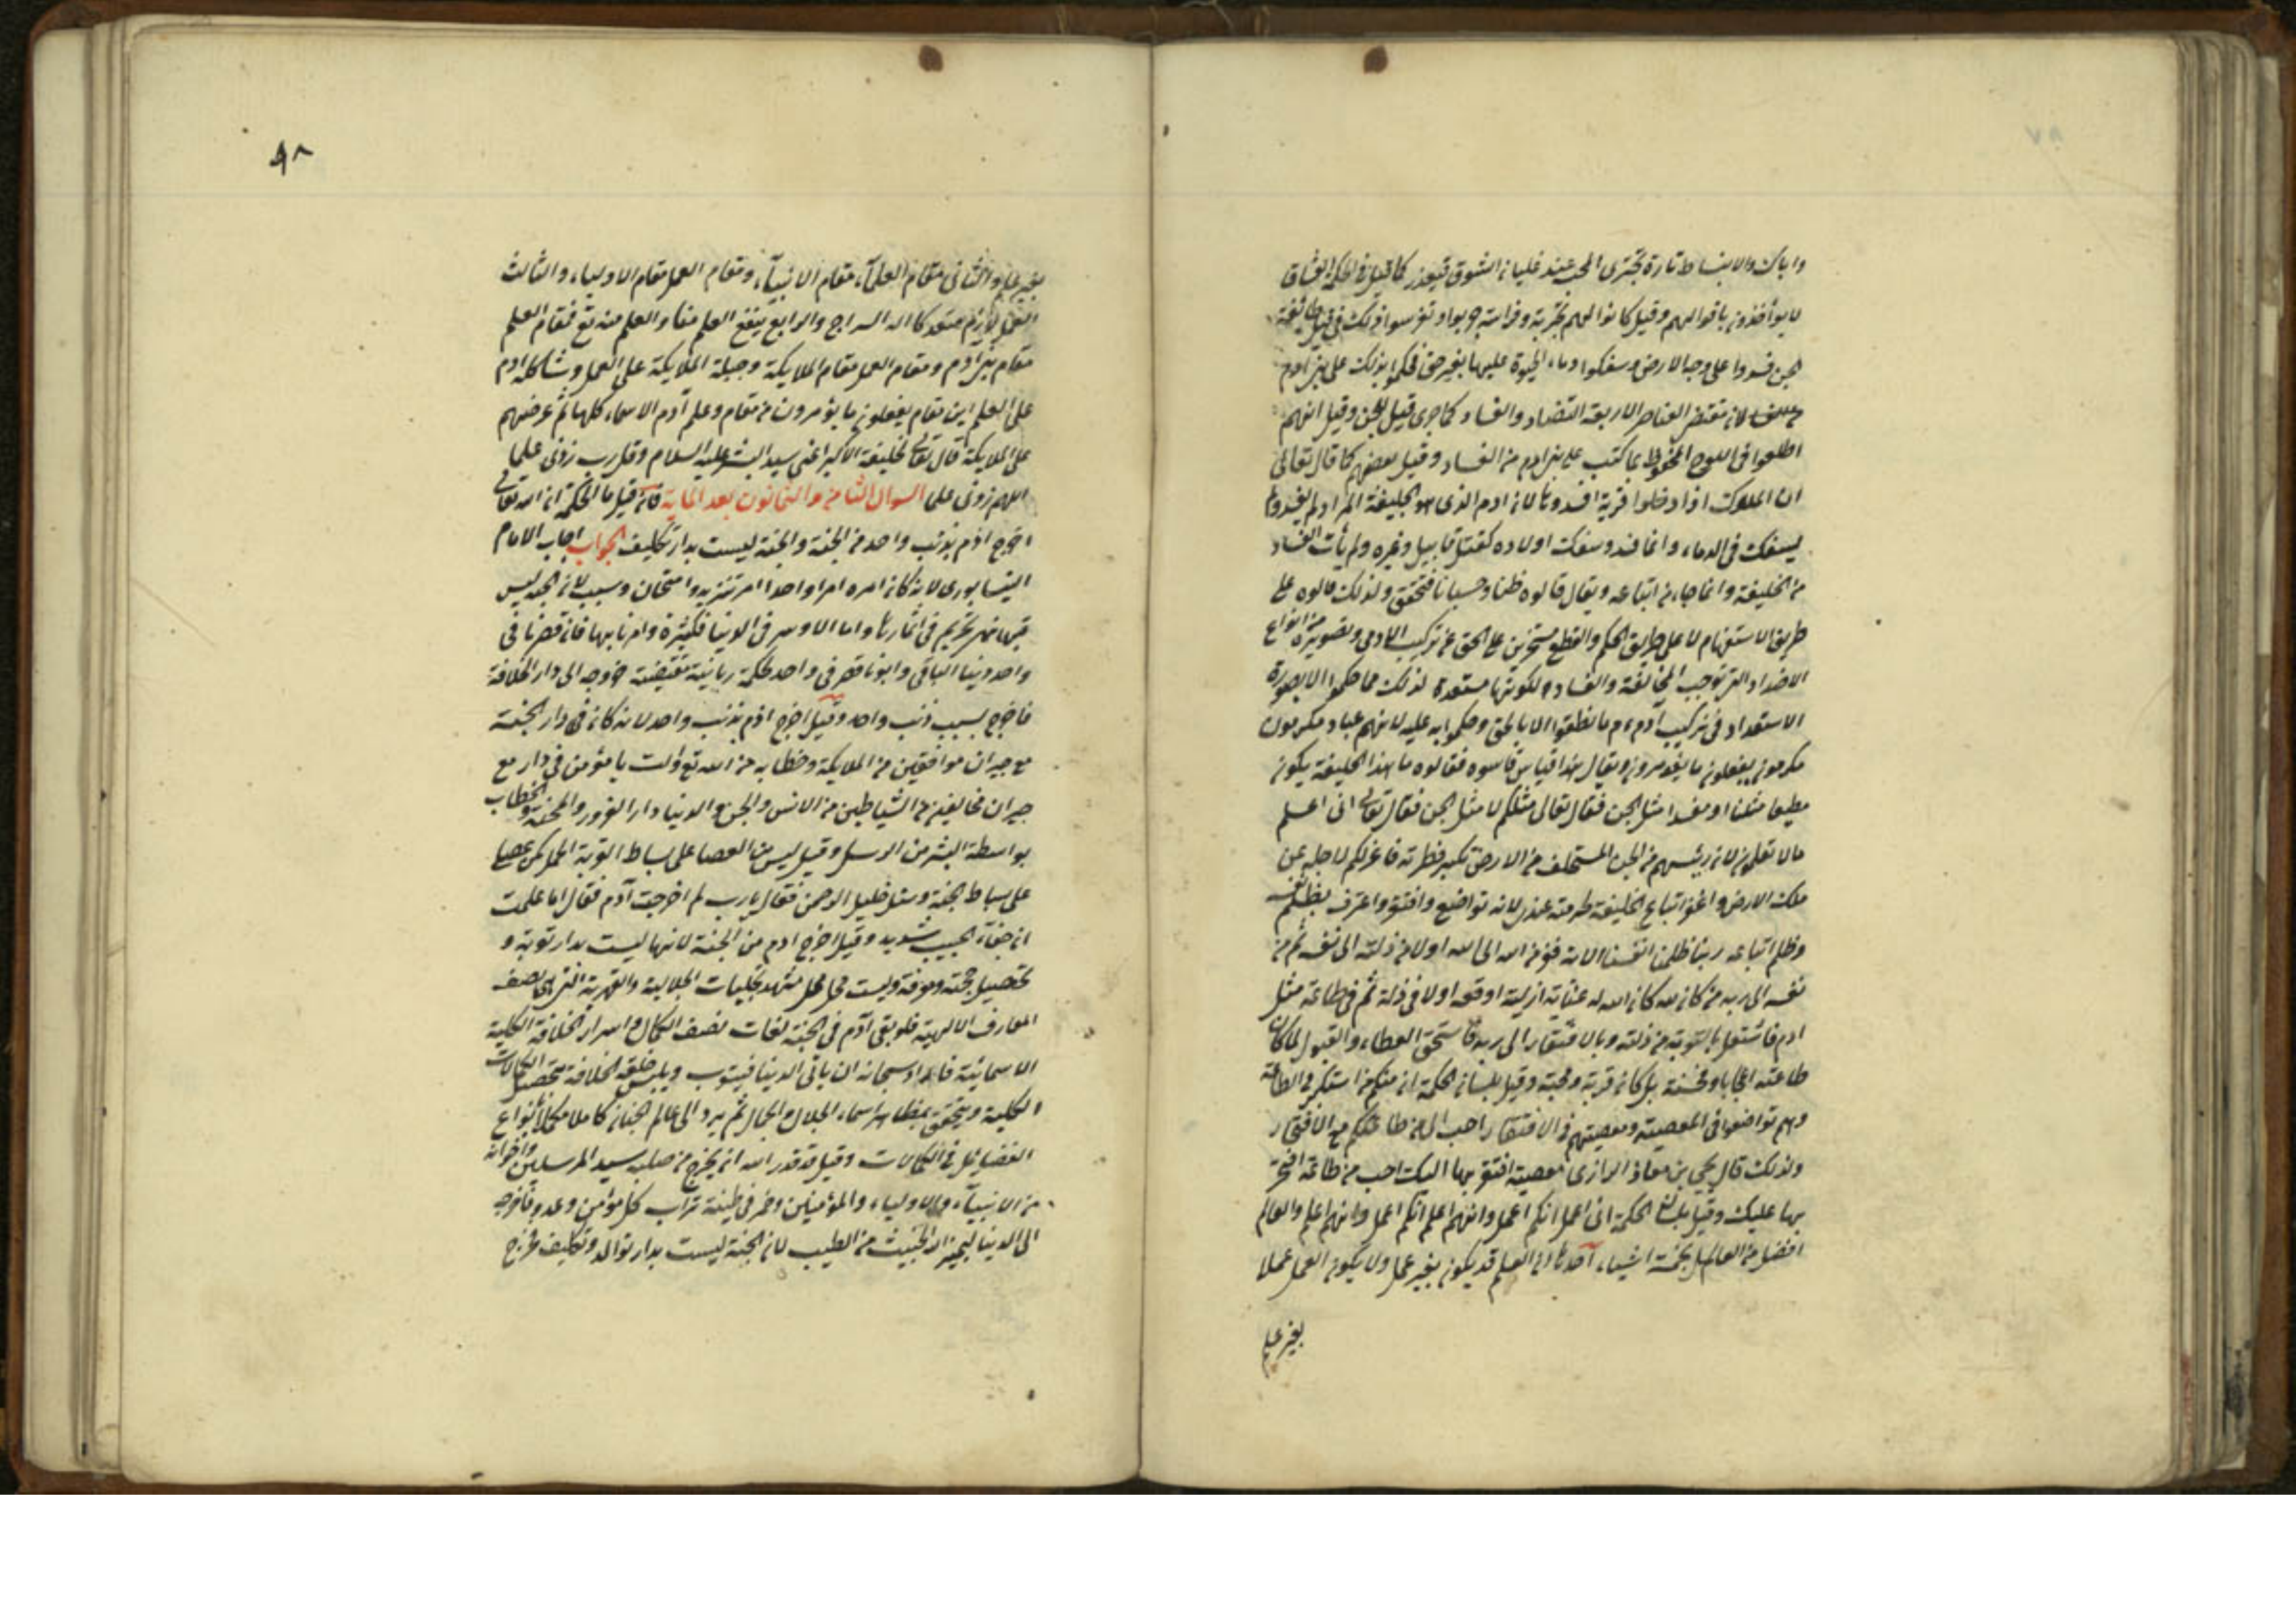 واياك والانبساط تارة تجترى المحب عند غليان الشوق فيعذر كما قيل في الحكمة العشاق
لا يوأخذون باقوالهم وقيل كانوا لهم تجربة وفراسة جربوا وتفرسوا ذلك في قبل طائفة
الجن فسدوا على وجه الارض وسفكوا دماء الحيوة عليها بغير حق فحكموا بذلك على بنى ادم
لانه مقتضى العناصر الاربعة التضاد والفساد كما جرى قبل للجن وقيل انهم
اطلعوا فى اللوح المحفوظ بما كتب على بنى ادم من الفساد وقيل بعضهم كما قال تعالى
ان الملوك اذا دخلوا قرية افسدوها لان ادم الذى هو الخليفة المراد لم يفسد ولم
يسفك فى الدماء وانما فسد وسفك اولاده كقتل قابيل وغيره ولم يأت الفساد
من الخليفة وانما جاء من اتباعه ويقال قالوه ظنا وحسبانا فتحقق ولذلك قالوه على
طريق الاستفهام لا على طريق الحكم والقطع مستخبرين على الحق عن تركيب الادمى وتصويره من انواع
الاضداد التى توجب المخالفة والفساد لكونها مستعدة لذلك فما حكموا الا بصورة
الاستعداد فى تركيب ادم م ما نطقوا الا بالحق وحكموا به عليه لانهم عباد مكرمون
مكرمون يفعلون ما يؤمرون ويقال هذا قياس قاسوه فقالوه ما هذا الخليفة يكون
مطيعا مثلنا او مفسدا مثل الجن فقال تعالى مثلكم لا مثل الجن فقال تعالى انى اعلم
مالا تعلمون لان رئيسهم من الجن المستخلف من الارض تكبر فطرته فاعزلكم لاجله عن
ملك الارض واغوا اتباع الخليفة طر منه عذر لانه تواضع وافتقر واعترف بظلم نفسه
وظلم اتباعه ربنا ظلمنا انفسنا الاية ففر من الله الى الله اولا من ذلته الى نفسه ثم من
نفسه الى ربه من كان لله كان الله له عناية ازلية اوقعه اولا فى ذلة ثم فى طاعة مثل
ادم فاشتغل بالتوبة من ذلته وبالافتقار الى ربه فاستحق العطاء والقبول لما كان
طاعته اعجابا ومحنة بل كان قربة ومحبة وقيل بلسان الحكمة ان منكم من استكبر فى الطاعة
وهم تواضعوا فى المعصية ومعصيتهم فى الافتقار احب الى من طاعتكم مع الافتخار
ولذلك قال يحيى بن معاذ الرازى معصية افتقر بها اليك احب من طاعة افتخر
بها عليك وقيل بلسان الحكمة انى اعمل انكم اعمل وانهم اعلم انكم اعمل وانهم اعلم والعالم
افضل من العامل بخمسة اشياء احدها ان العلم قد يكون بغير عمل ولا يكون العمل عملا
بغير علم
٩٨
بغير علم والثانى مقام العلمآء مقام الانبيآء ومقام العمل مقام الاولياء والثالث
العمل لازم متعد كا السراج والرابع ينفع العلم مناد العلم منه تع فمقام العلم
مقام بنى ادم ومقام العمل مقام الملايكة وجبلة الملايكة على العمل وشاكلة ادم
على العلم اين مقام يفعلون ما يؤمرون من مقام وعلم آدم الاسماء كلها ثم عرضهم
على الملايكة قال تعالى لخليفته الاكبر اعنى سيد البشر عليه السلام وقل رب زدنى علما
اللهم زدنى علما السوال الثامن والثمانون بعد الماية فان قيل ما الحكمة ان الله تعالى
اخرج ادم بذنب واحد من الجنة والجنة ليست بدار تكليف الجواب اجاب الامام
النيسابورى لانه كان امره امرا واحدا امر تنزيه وامتحان وسبب لان الجنة ليس
فيها نهى تحريم فى اثمارها واما الاوامر فى الدنيا فكثيرة وامرنا بها فان قصرنا فى
واحد دينا الباقى وابونا قصر فى واحد لحكمة ربانية مقتضية خروجه الى دار الخلافة
فاخرج بسبب ذنب واحد وقيل اخرج ادم بذنب واحد لانه كان فى دار الجنة
مع جيران موافقين من الملايكة وخطابه من الله تع وانت يا مؤمن فى دار مع
جيران مخالفين من الشياطين من الانس والجن والدنيا دار الغرور والمحنة والخطاب
بواسطة البشر من الرسل وقيل ليس من العصا على بساط التوبة العمل كمن عصا
على بساط الجنة وسئل خليل الرحمن فقال يا رب لم اخرجت آدم فقال اما علمت
ان جفآء الحبيب شديد وقيل اخرج ادم من الجنة لانها ليست بدار توبة و
تحصيل محبة ومعرفة وليست هى محل مشهد تجليات الجلالية والقهرية التى هى نصف
المعارف الالهية فلو بقى آدم فى الجنة لفات نصف الكمال واسرار الخلافة الكلية
الاسمائية فاراد سبحانه ان ياتى الدنيا فيتوب ويلبس خلعة الخلافة بتحصيل الكمالات
الكلية ويتحقق بمظاهر اسماء الجلال والجمال ثم يرد الى عالم الجنان كاملا مكملا بانواع
الفضايل فى الكمالات وقيل قد قدر الله ان يخرج من صلبه سيد المرسلين واخوانه
من الانبيآء والاولياء والمؤمنين وخمر فى طينة تراب كل مؤمن وعدو فاخرجه
الى الدنيا ليميز الله الخبيث من الطيب لان الجنة ليست بدار توالد وتكليف فخرج